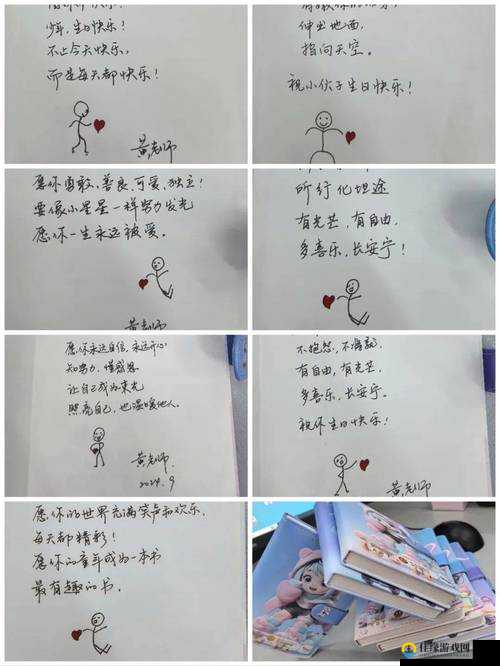 少年，生日快乐！
不止今天快乐，
而是每天都快乐！
黄老师
伸出地面，
指向天空。
祝小伙子生日快乐！
愿你勇敢，善良，可爱，独立！
要像小星星一样努力发光
愿你一生永远被爱。
黄老师
所行化坦途
有光芒，有自由，
多喜乐，长安宁！
愿你永远自信，永远开心
知努力，懂感恩
让自己成为束光
照亮自己，也温暖他人。
黄老师
2024.9
不抱怨，不
有自由，有光芒，
多喜乐，长安宁。
祝你生日快乐！
黄老师
愿你的世界充满笑声和欢乐，
每天都精彩！
愿你的童年成为一本书
最有趣的书。
佳缘游戏网